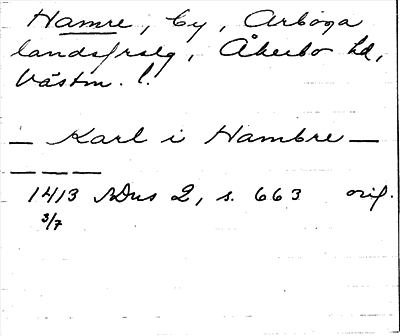 Hamre, by, Arboga
landsförs­lg, Åkerbo hd,
Västm. l.
— Karl i Hambre —
— — —
1413 SDns 2, s. 663 orig.
3/7